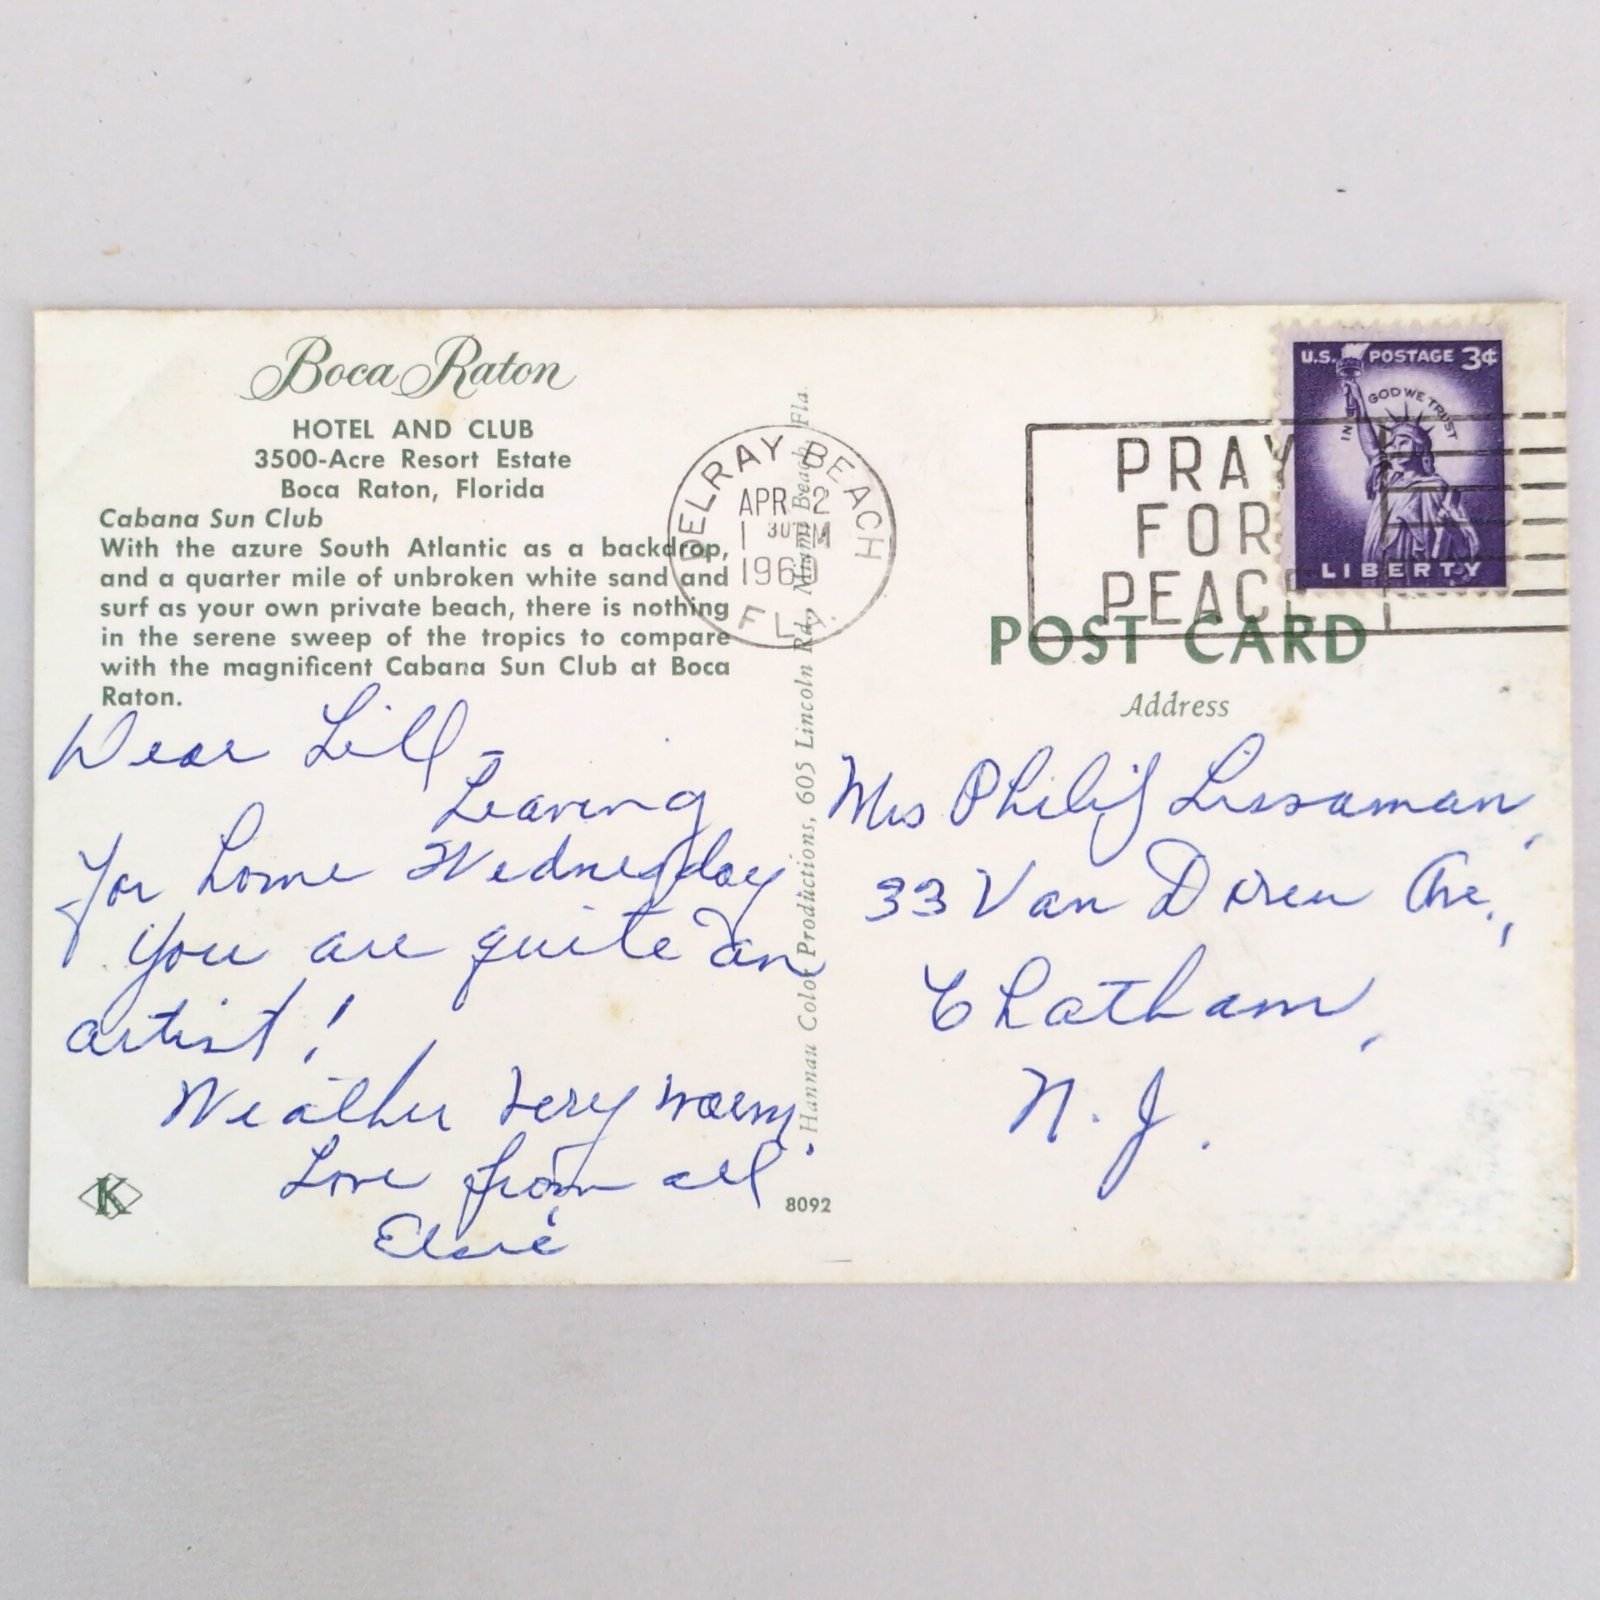 Boca Raton
HOTEL AND CLUB
3500-Acre Resort Estate
Boca Raton, Florida
Cabana Sun Club
With the azure South Atlantic as a backdrop,
and a quarter mile of unbroken white sand and
surf as your own private beach, there is nothing
in the serene sweep of the tropics to compare
with the magnificent Cabana Sun Club at Boca
Raton.
Dear Lill -
Leaving
for home Wednesday
You are quite an
artist!
Weather very warm.
Love from all
Elsie
K
8092
Hannau Color Productions, 605 Lincoln Rd., Miami Beach, Fla.
DELRAY BEACH
APR 2
1 30 PM
1960
FLA.
PRAY
FOR
PEACE
U.S. POSTAGE 3¢
IN GOD WE TRUST
LIBERTY
POST CARD
Address
Mrs Philip Lissaman,
33 Van Doren Ave.,
Chatham,
N. J.